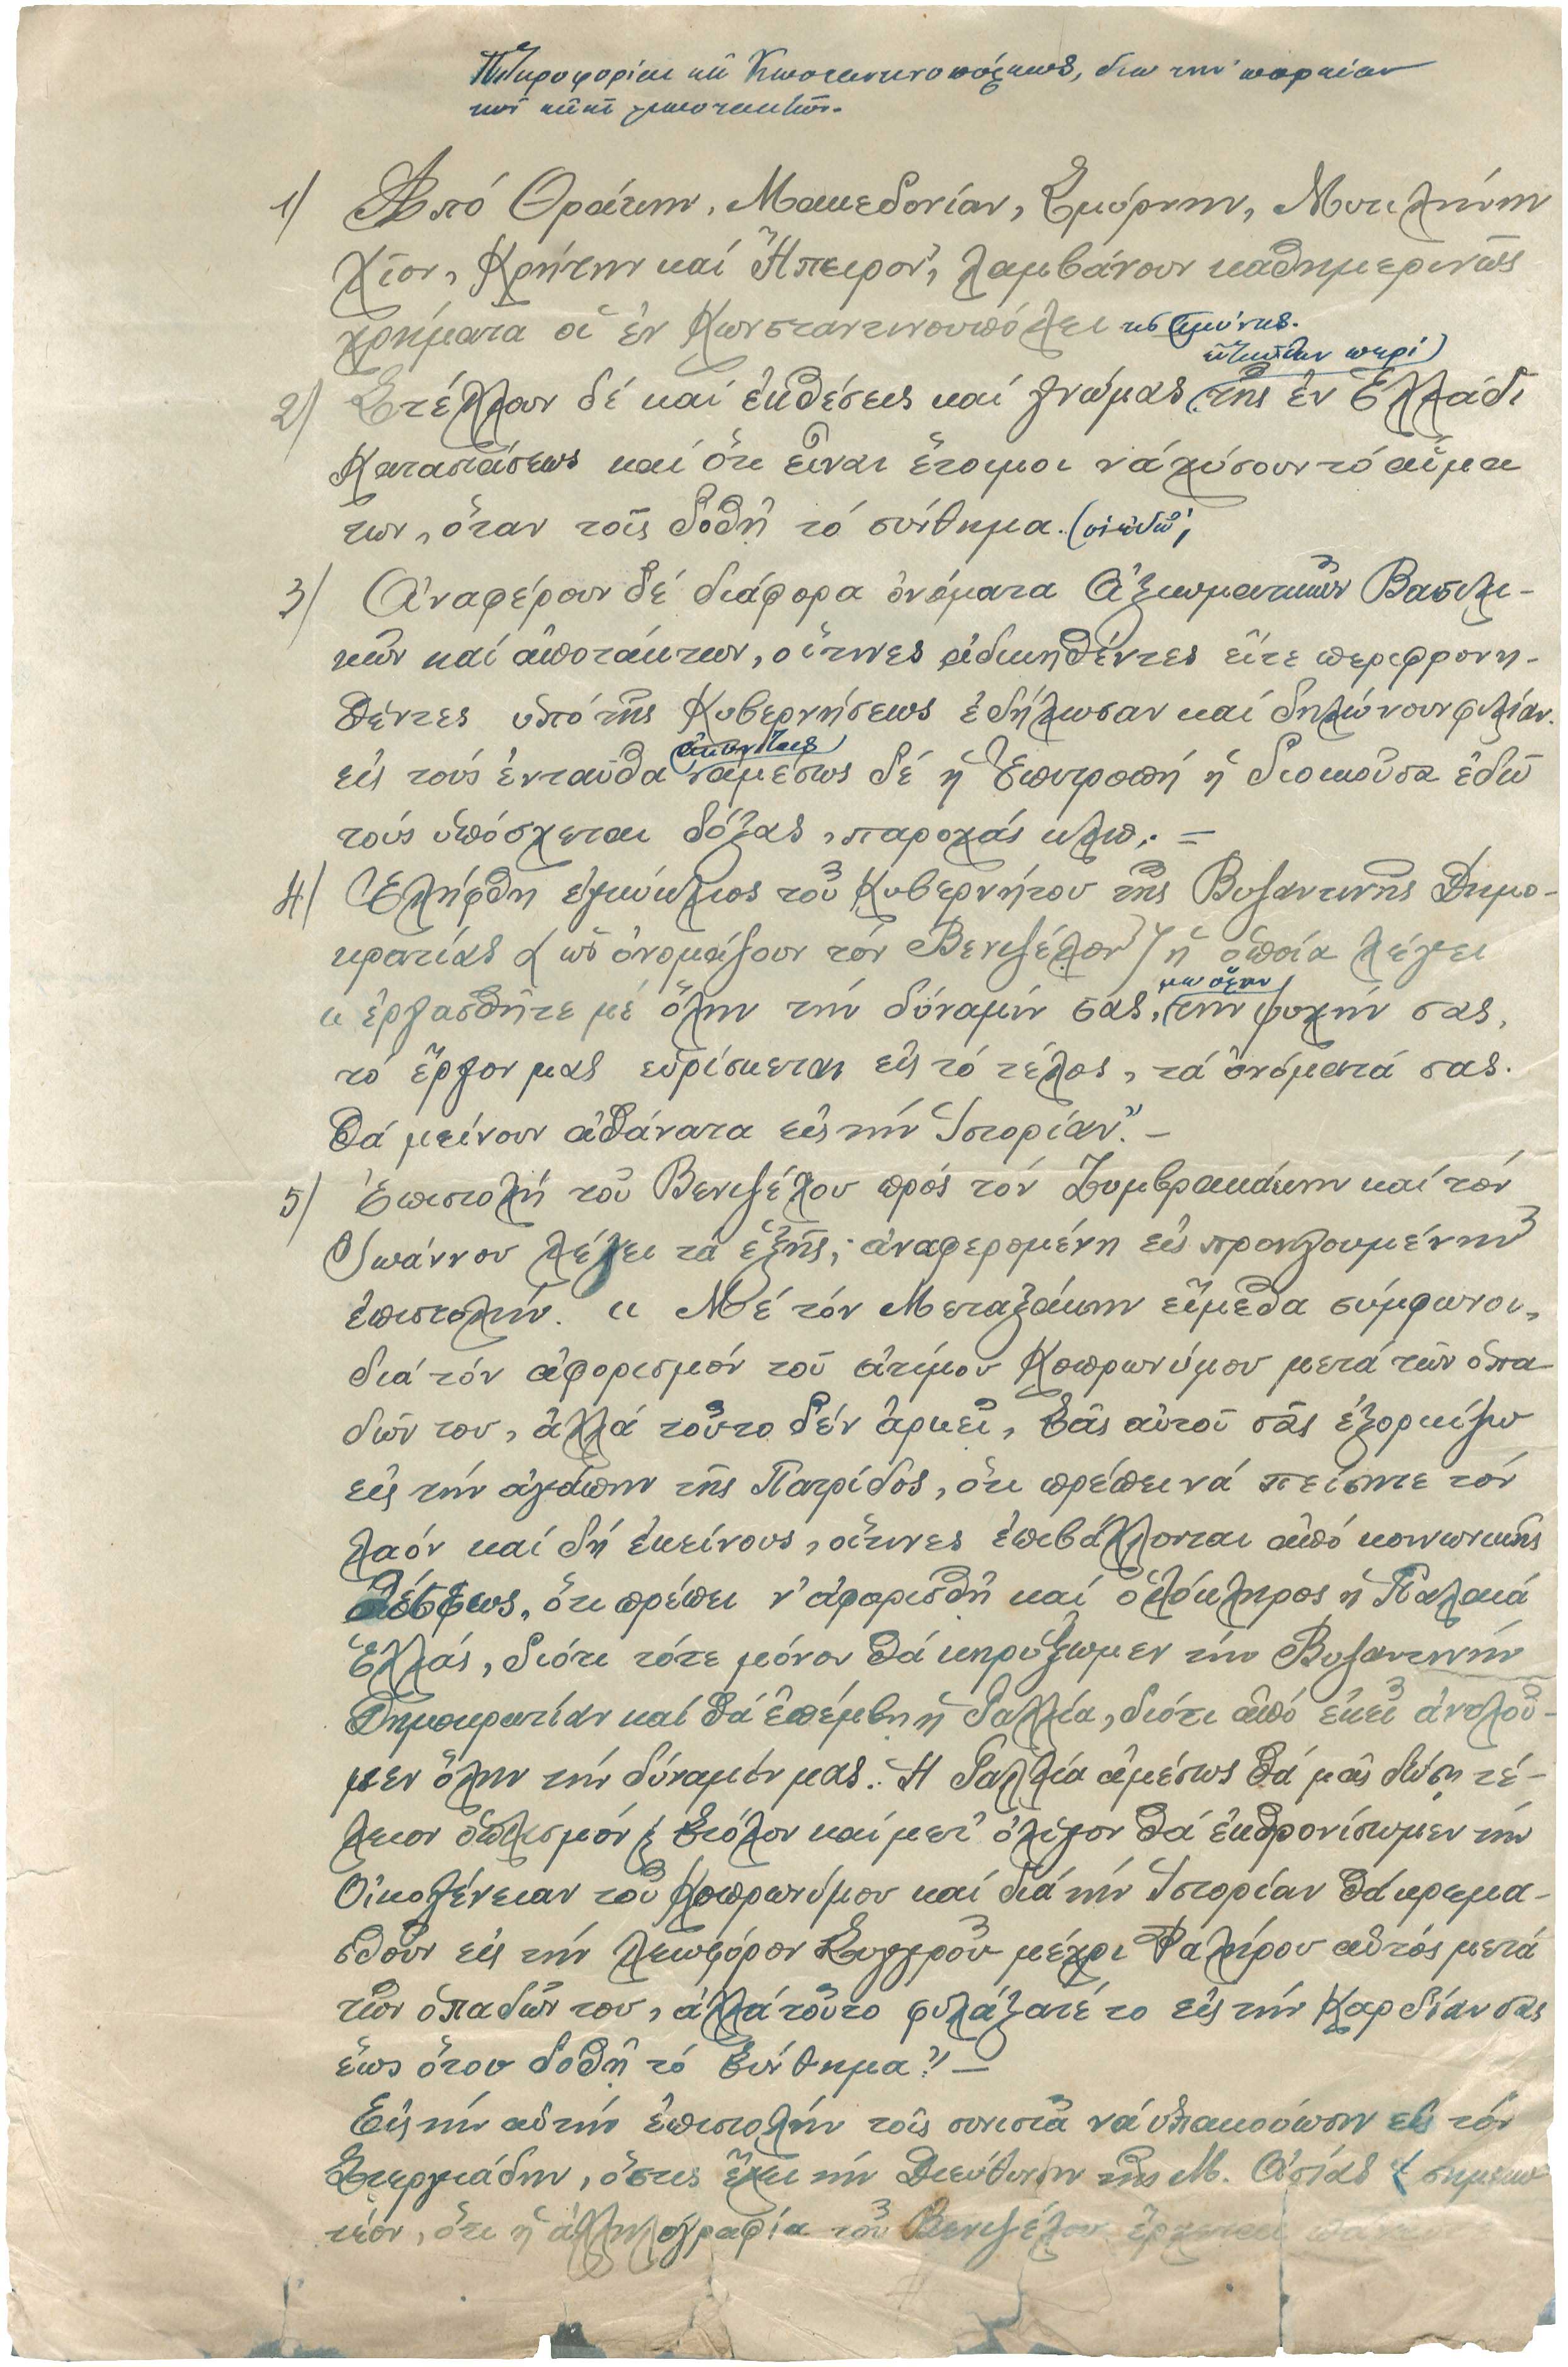 Πληροφορίαι ἐκ Κωνσταντινουπόλεως, διὰ τὴν πορείαν
τῶν ἐκεῖ
1) Ἀπό Θράκην, Μακεδονίαν, Σμύρνην, Μυτιλήνην
Χῖον, Κρήτην καί Ἤπειρον, λαμβάνουν καθημερινῶς
χρήματα οἱ ἐν Κωνσταντινουπόλει τῆς Ἀμύνης.
περί)
2) Στέλλουν δέ καί ἐκθέσεις καί γνώμας (τῆς ἐν Ἑλλάδι
Καταστάσεως καί ὅτι εἶναι ἕτοιμοι νά χύσουν τό αἷμα
των, ὅταν τοῖς δοθῇ τό σύνθημα. (οἱ ἐδῶ;
3) Ἀναφέρουν δέ διάφορα ὀνόματα Ἀξιωματικῶν Βασιλι-
κῶν καί ἀποτάκτων, οἵτινες ἀδικηθέντες εἴτε περιφρονη-
θέντες ὑπό τῆς Κυβερνήσεως ἐδήλωσαν καί δηλώνουν φιλίαν.
εἰς τούς ἐνταῦθα ἀμέσως δέ ἡ Ἐπιτροπή ἡ διοικοῦσα ἐδῶ
τούς ὑπόσχεται δόξας, παροχάς κλπ. =
4) Ἐλήφθη ἐγκύκλιος τοῦ Κυβερνήτου τῆς Βυζαντινῆς Δημο-
κρατίας (ὡς ὀνομάζουν τόν Βενιζέλον) ἡ ὁποία λέγει
μὲ ὅλην
"ἐργασθῆτε μέ ὅλην τήν δύναμίν σας, (τήν ψυχήν σας,
τό ἔργον μας εὑρίσκεται εἰς τό τέλος, τά ὀνόματά σας.
θά μείνουν ἀθάνατα εἰς τήν Ἱστορίαν". -
5) Ἐπιστολή τοῦ Βενιζέλου πρός τόν Ζυμβρακάκην καί τόν
Ἰωάννου λέγει τά ἑξῆς, ἀναφερομένη εἰς προηγουμένην
ἐπιστολήν. " Μέ τόν Μεταξάκην εἴμεθα σύμφωνοι,
διά τόν ἀφορισμόν τοῦ ἀτίμου Κοπρωνύμου μετά τῶν ὀπα
δῶν του, ἀλλά τοῦτο δέν ἀρκεῖ, Σᾶς αὐτοῦ σᾶς ἐξορκίζω
εἰς τήν ἀγάπην τῆς Πατρίδος, ὅτι πρέπει νά πείσητε τόν
λαόν καί δή ἐκείνους, οἵτινες ἐπιβάλλονται ἀπό κοινωνικῆς
θέσεως, ὅτι πρέπει ν' ἀφορισθῇ καί ὁλόκληρος ἡ Παλαιά
Ἑλλάς, διότι τότε μόνον θά κηρύξωμεν τήν Βυζαντινήν
Δημοκρατίαν καί θά ἐπέμβῃ ἡ Γαλλία, διότι ἀπό ἐκεῖ ἀντλοῦ-
μεν ὅλην τήν δύναμίν μας. Ἡ Γαλλία ἀμέσως θά μᾶς δώσῃ τέ-
λειον ὁπλισμόν ξ Στόλον καί μετ' ὀλίγον θά ἐκθρονίσωμεν τήν
Οἰκογένειαν τοῦ Κοπρωνύμου καί διά τήν Ἱστορίαν θά κρεμα-
σθοῦν εἰς τήν λεωφόρον Συγγροῦ μέχρι Φαλήρου αὐτός μετά
τῶν ὀπαδῶν του, ἀλλά τοῦτο φυλάξατέ το εἰς τήν Καρδίαν σας
ἕως ὅτου δοθῇ τό Σύνθημα". -
Εἰς τήν αὐτήν ἐπιστολήν τοῖς συνιστᾶ νά ὑπακούωσιν εἰς τόν
Στεργιάδην, ὅστις ἔχει τήν Διεύθυνσιν τῆς Μ. Ἀσίας (σημειω
τέον, ὅτι ἡ ἀλληλογραφία τοῦ Βενιζέλου ἔρχεται